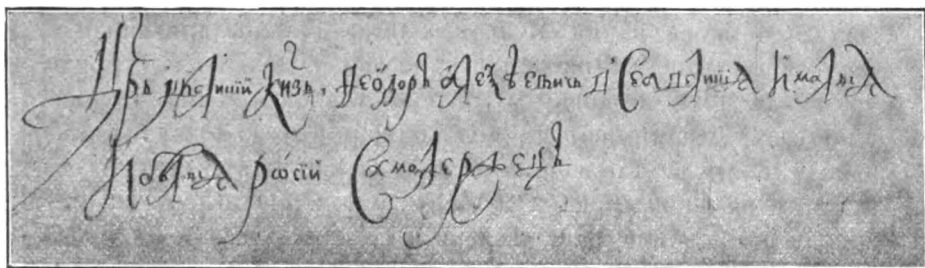 Црь и великий кнзь, Ѳеодоръ Алеѯѣевичь всеа великиѧ и малыѧ
и бѣлыѧ росиї самодержецъ